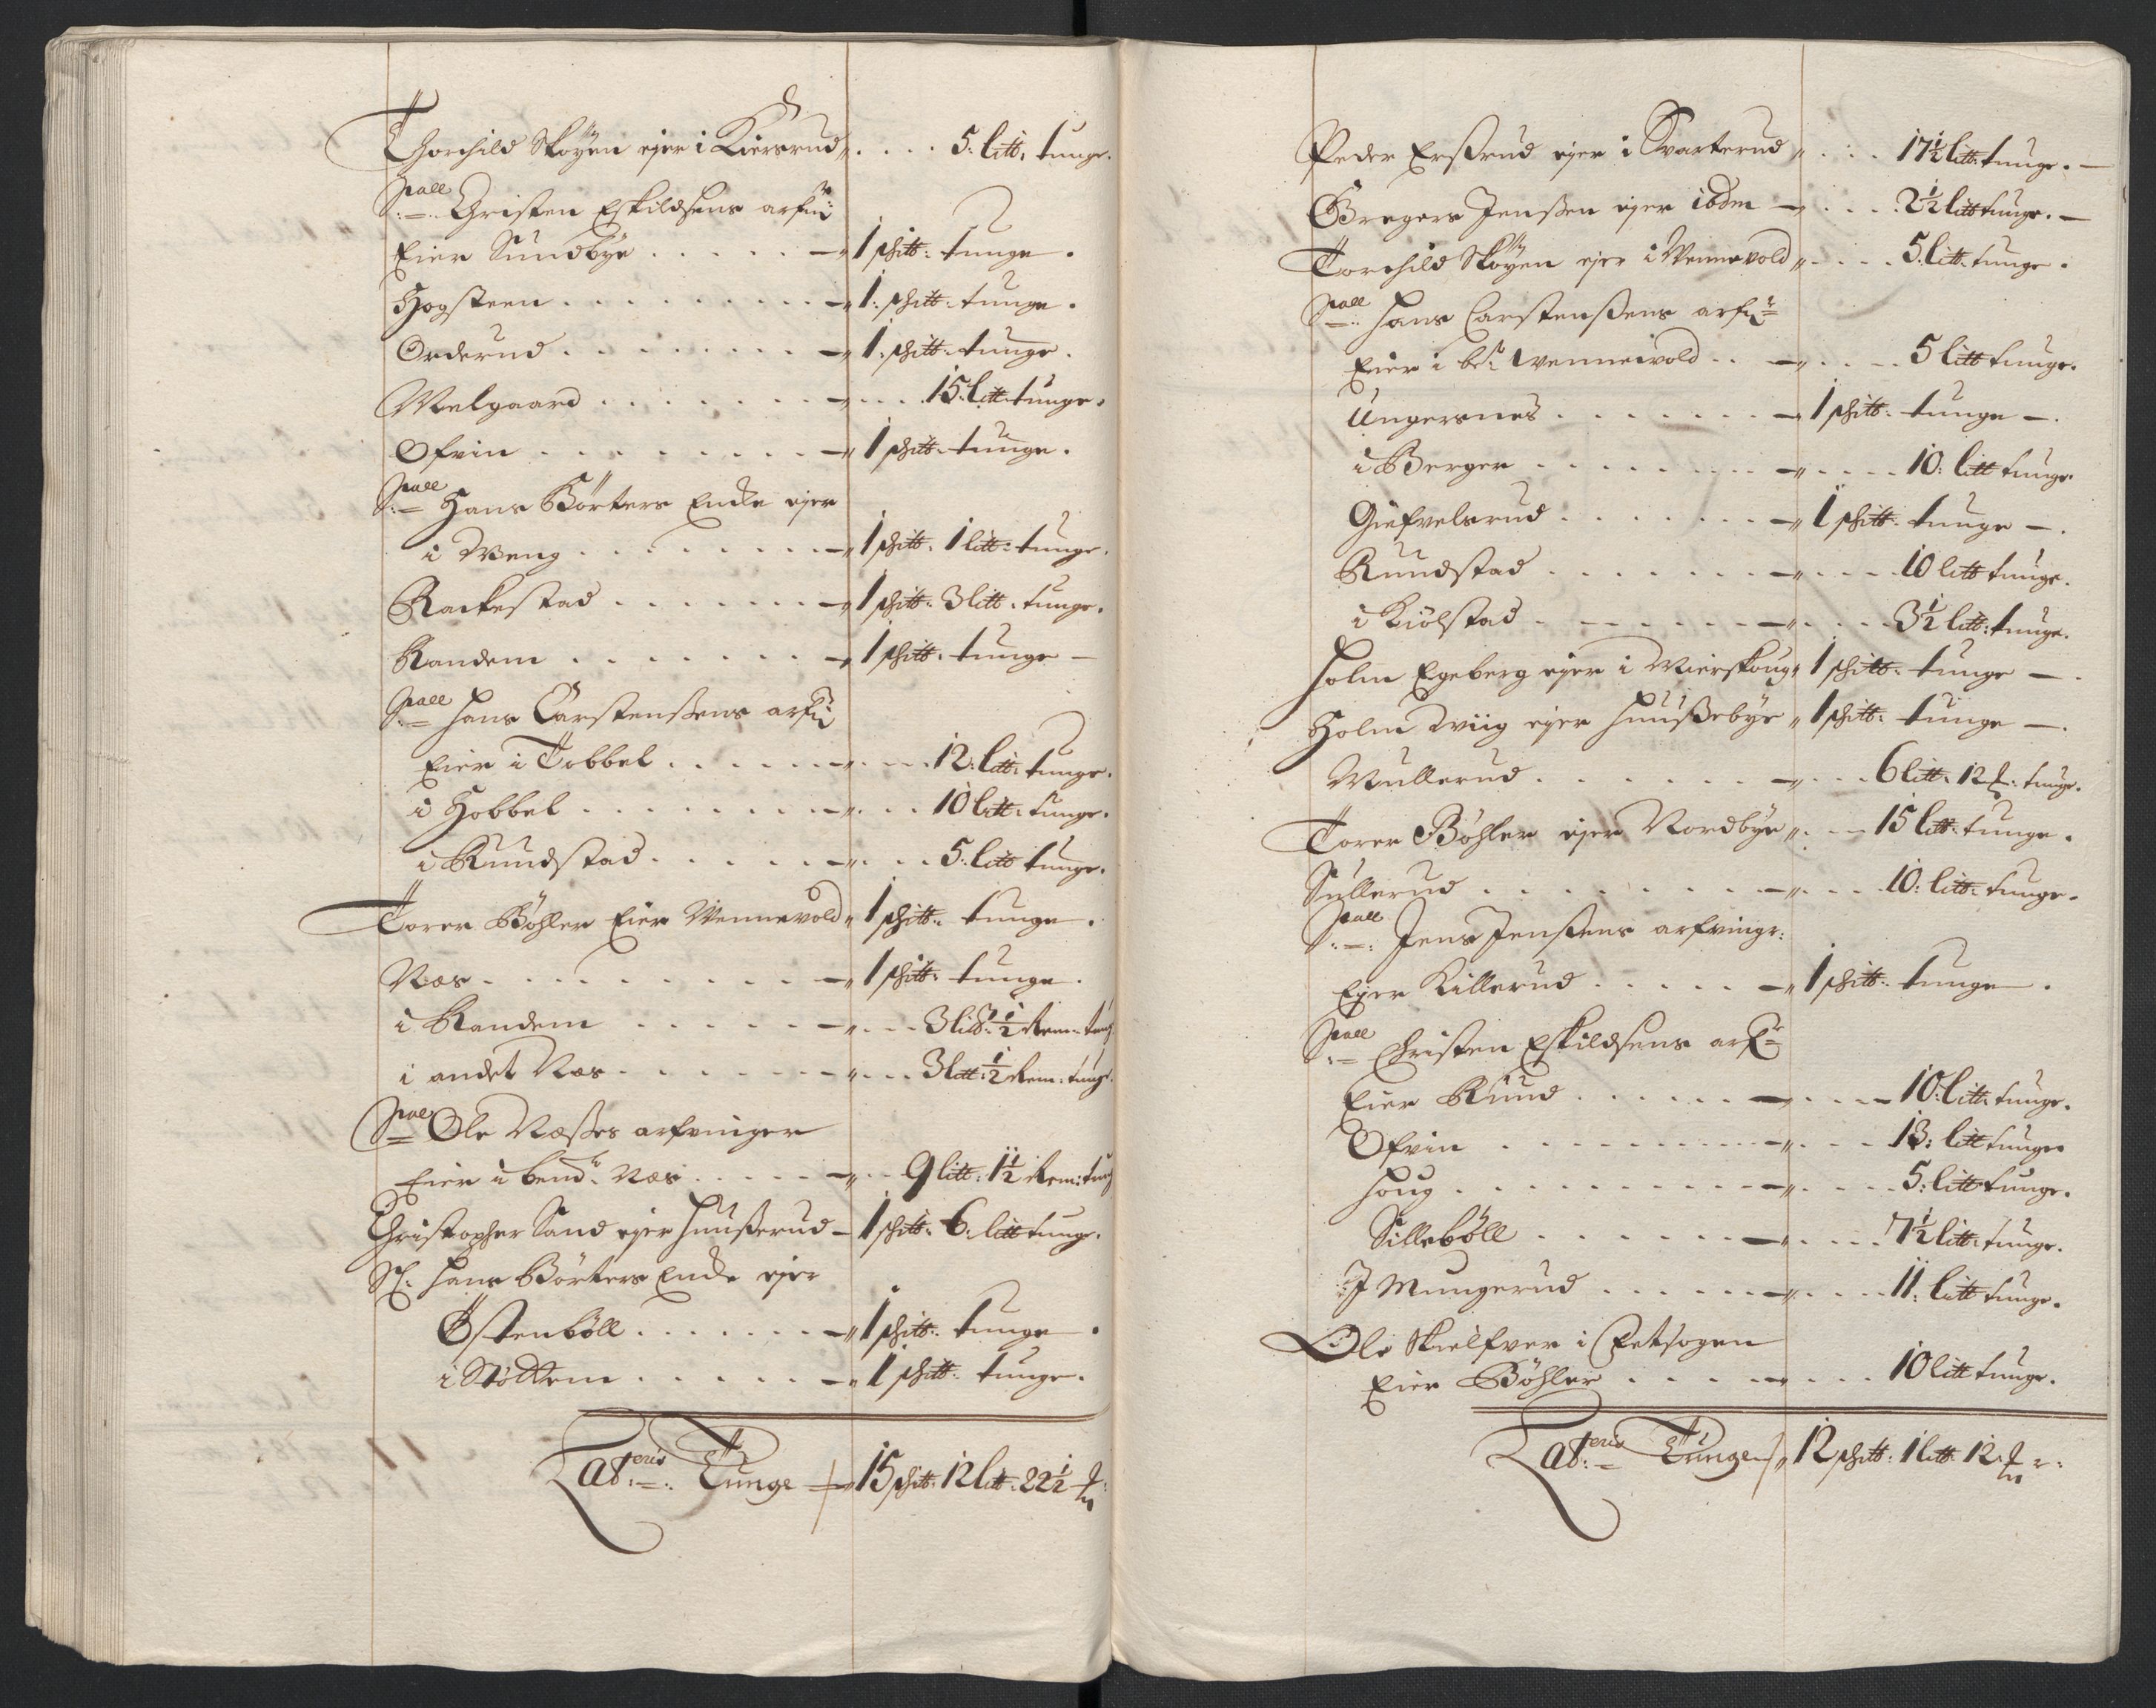 Thorchild Skøyen ejer i Kiersrud „ . . . . 5: litt: tunge.
Sall: Christen Eskildsens arfv:
Eier Sundbye . . . . . — „ 1 schitt: tunge.
Hogsteen . . . . . . . . — „ 1: schitt: tunge.
Orderud . . . . . . . . — „ 1: schitt: tunge.
Melgaard . . . . . . . — „ . . . 15: litt: tunge.
Ofvin . . . . . . . . . — „ 1 schitt: tunge.
Sall: Hans Børters Encke ejer
i Weng . . . . . . . . — „ 1 schitt: 1 litt: tunge.
Rackestad . . . . . . . — „ 1 schitt: 3 litt: tunge.
Randem . . . . . . . — „ 1 schitt: tunge —
Sall: Hans Carstensens arfv:
Eier i Tobbel . . . . . . — „ . . . 12: litt: tunge.
i Hobbel . . . . . . . . — „ . . . 10 litt: tunge.
i Rundstad . . . . . . — „ . . . 5: litt tunge.
Torer Bøhler Eier Wennevold „ 1 schitt: tunge.
Næs . . . . . . . . . — „ 1 schitt: tunge.
i Randem . . . . . . — „ . . . 3 litt: ½ Rem: tung
i andet Næs . . . . . . . — „ . . . 3 litt: ½ Rem: tunge.
Sal: Ole Næsses arfvinger
Eier i bemt: Næs . . . . . — „ . . 9 litt: 1½ Rem: tung
Christopher Sand ejer Huusserud — 1 schitt: 6: litt tunge.
Sl: Hans Børters Encke ejer
Østenbøll . . . . . . . — „ 1 schitt: tunge.
i Støttem . . . . . . — „ 1 schitt: tunge.
Lateris Tunge — 15 schitt: 12 litt: 22½
Peder Ersrud ejer i Svarterud „ . . . 17½ litt: tunge. —
Gregers Jenssen ejer ibdm — „ . . . 2½ litt tunge. —
Torchild Skøyen ejer i Wennevold „ . . . . 5: litt: tunge.
Sall: Hans Carstenssens arfv:
Eier i bete Wennevold . . — „ . . . . 5 litt tunge.
Ungersnes . . . . . . . — „ 1 schitt: tunge —.
i Berger . . . . . . . . — „ . . . . 10: litt tunge.
Giefvelsrud . . . . . . . — „ 1 schitt: tunge —.
Rundstad . . . . . . . — „ . . . . 10 litt tunge.
i Kiølstad . . . . . . . — „ . . . . 3½ litt: tunge.
Holm Egeberg ejer i Mierskoug „ 1 schitt: tunge —.
Holm Wiig ejer Huussebye „ 1 schitt: tunge —.
Mullerud . . . . . . . — „ . . . 6 litt: 12 : tunge.
Torer Bøhler ejer Nordbye „ . . — 15 litt: tunge.
Sullerud . . . . . . . . — „ . . . 10: litt: tunge.
Sall: Jens Jenssens arfvinge:
Ejer Killerud . . . . . — „ 1 schitt: tunge.
Sall: Christen Eskildsens arfv:
Eier Ruud . . . . . . — „ . . . 10: litt: tunge.
Ofvin . . . . . . . . . — „ . . . . 13: litt tunge
Houg . . . . . . . . . . — „ . . . . 5: litt tunge.
Sillebøll . . . . . . . — „ . . . . 7½ litt: tunge.
J Mungerud . . . . . . — „ . . . . 11: litt tunge.
Ole Skielfver i Eetsogen
Eier Bøhler . . . . — „ . . . 10 litt tunge.
Lateris Tunge „ 12 schitt: 1 litt: 12